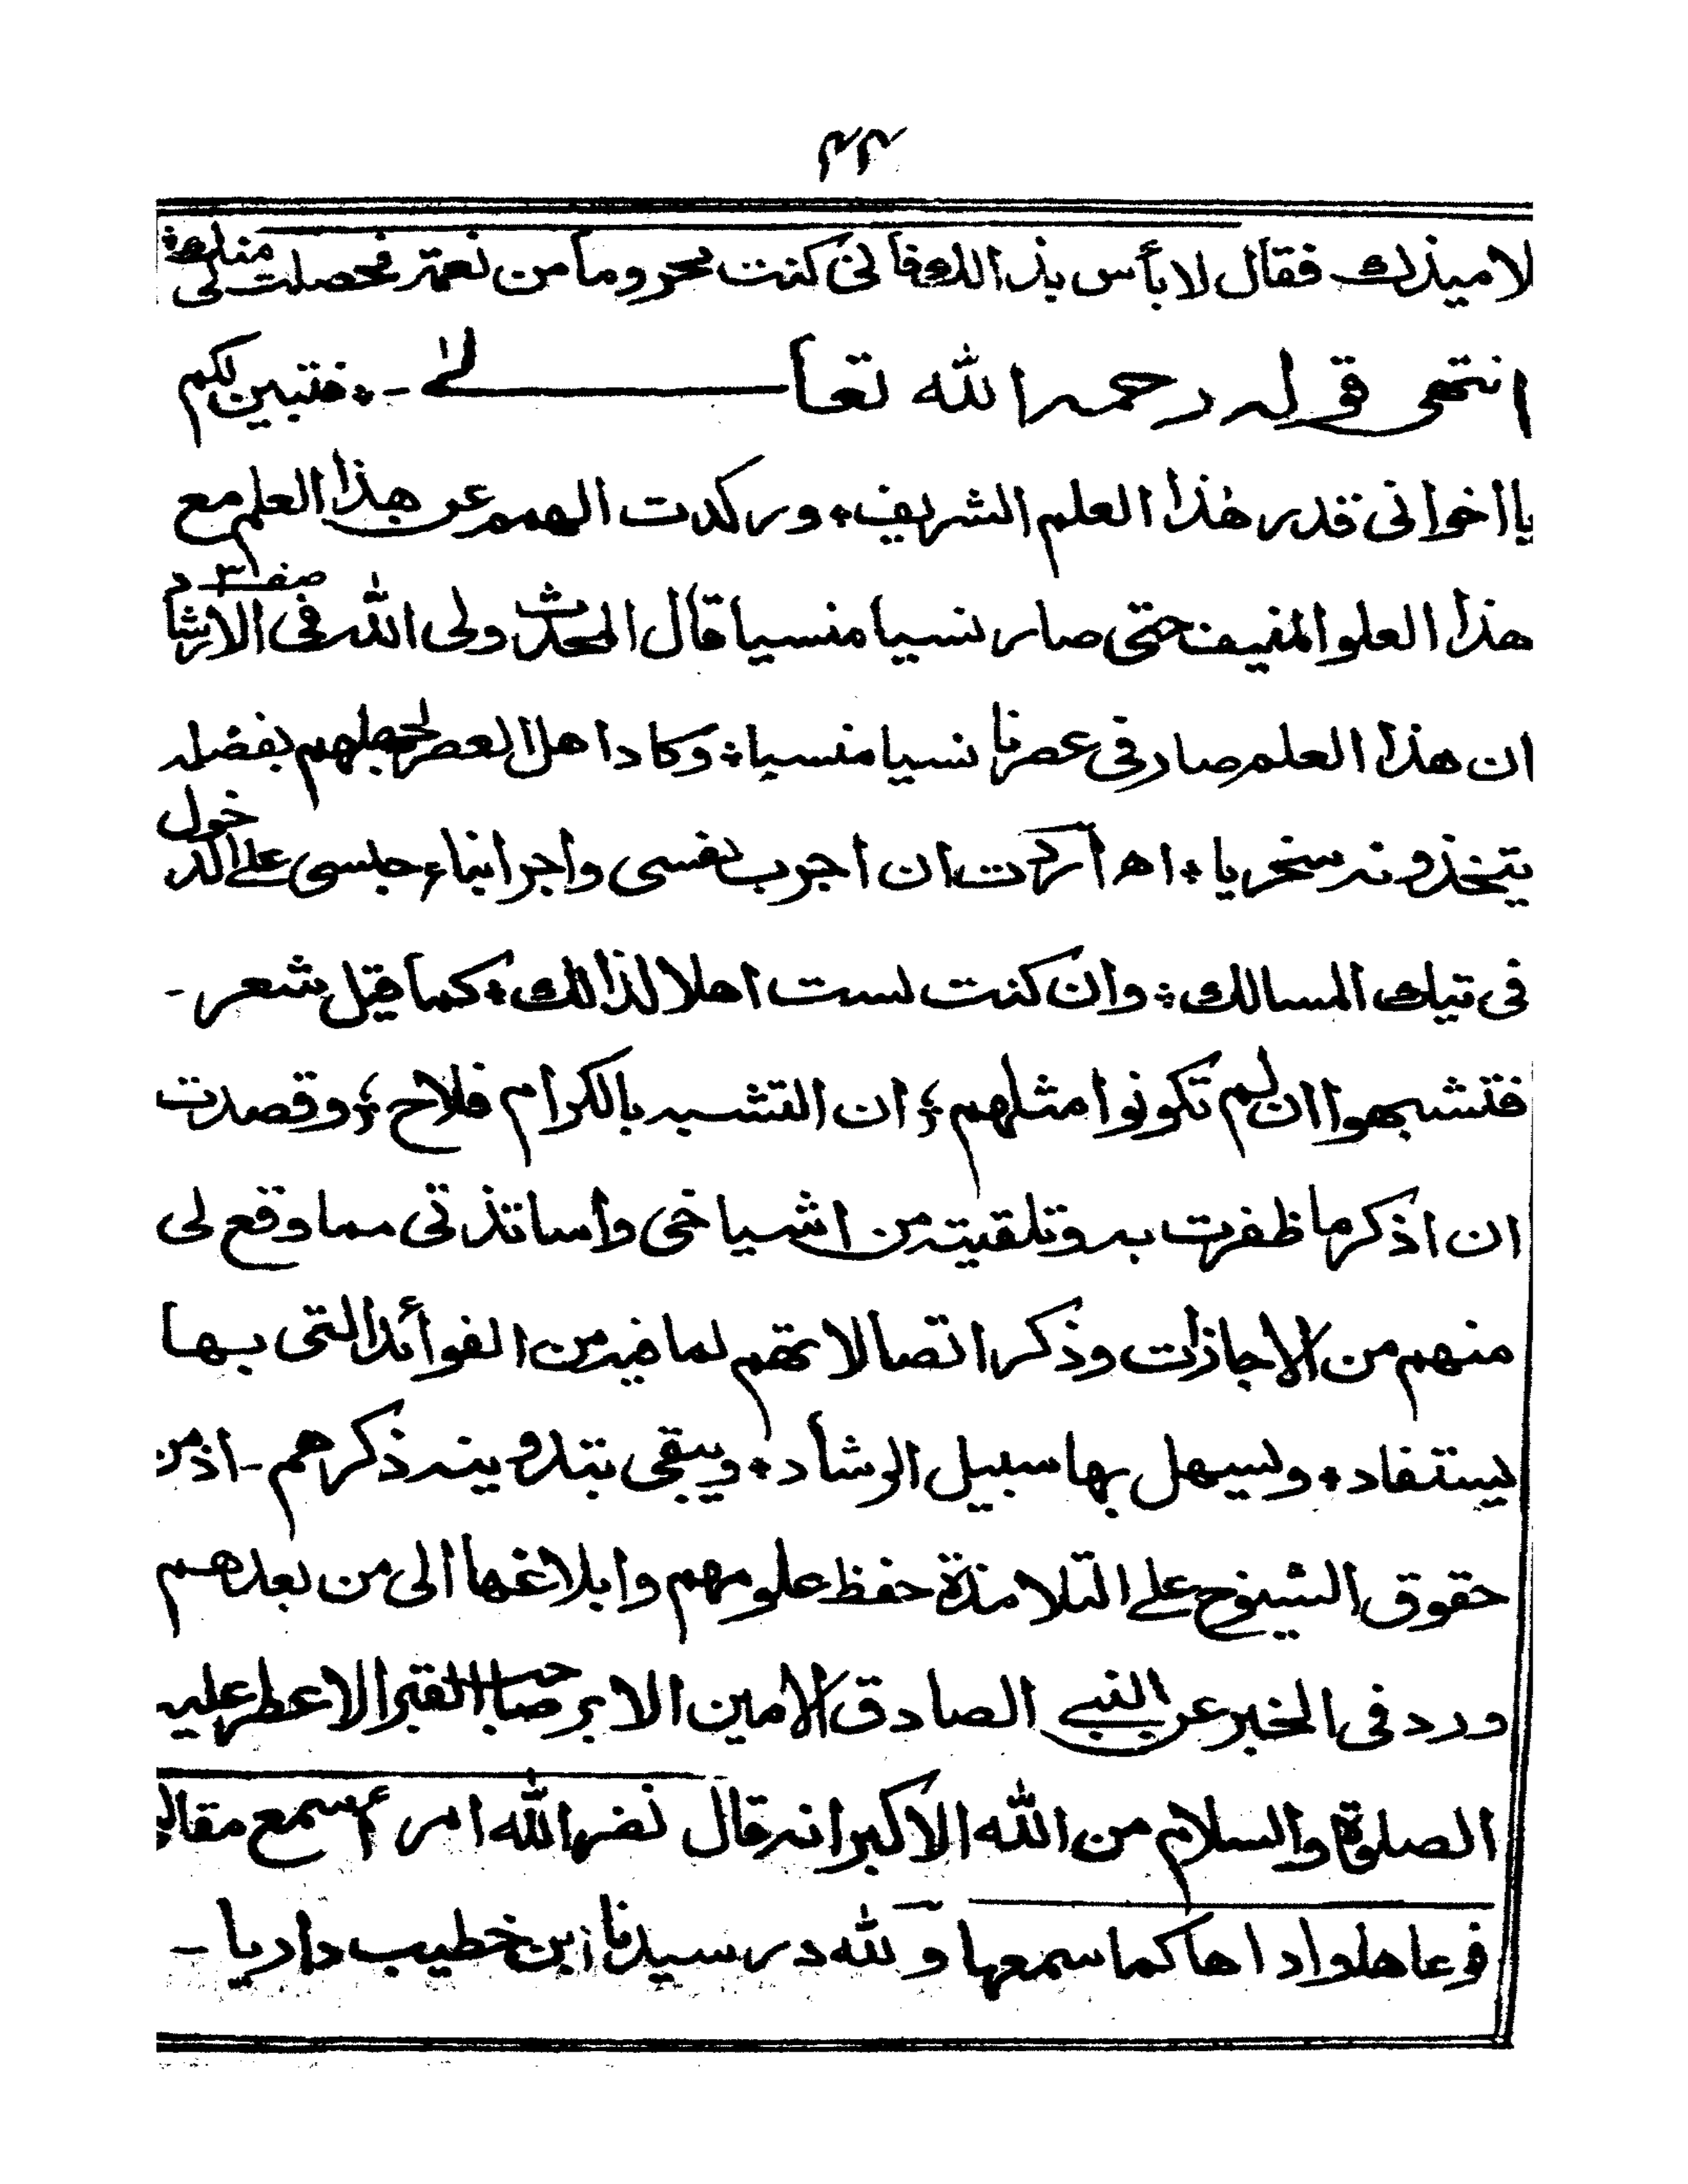 ۴۴
لاميذك فقال لا بأس بذالك فأنى كنت محروما من نعمة فحصلت لى منك
انتهى قوله رحمه الله تعالى - فتبين لكم
يا اخوانى قدر هٰذا العلم الشريف ٭ وركدت الهمم عن هذا العلم مع
هذا العلو المنيف حتى صار نسيا منسيا قال المحدث ولى الله فى الارشاد صفـ٣
ان هذا العلم صار فى عصرنا نسيا منسيا ٭ وكاد اهل العصر لجهلهم بفضله
يتخذونه سخريا ٭ اھ أردت ان اجرب نفسى واجر ابناء جلسى على الدخول
فى تيك المسالك ٭ وان كنت لست اهلا لذالك ٭ كما قيل شعر -
فتشبهوا ان لم تكونوا مثلهم ؛ ان التشبه بالكرام فلاح ؛ وقصدت
ان اذكر ما ظفرت به وتلقيته من اشياخى وأساتذتى مما وقع لى
منهم من الاجازات وذكر اتصالاتهم لما فيه من الفوائد التى بها
يستفاد ٭ ويسهل بها سبيل الرشاد ٭ ويبقى بتدوينه ذكرهم - اذ من
حقوق الشيوخ على التلامذة حفظ علومهم وابلاغها الى من بعدهم
ورد فى الخبر عن النبى الصادق الامين الابر صاحب القبر الاعطر عليه
الصلوة والسلام من الله الاكبر انه قال نضر الله امرأ سمع مقالتى
فوعاها واداها كما سمعها ولله در سيدنا ابن خطيب داريا -